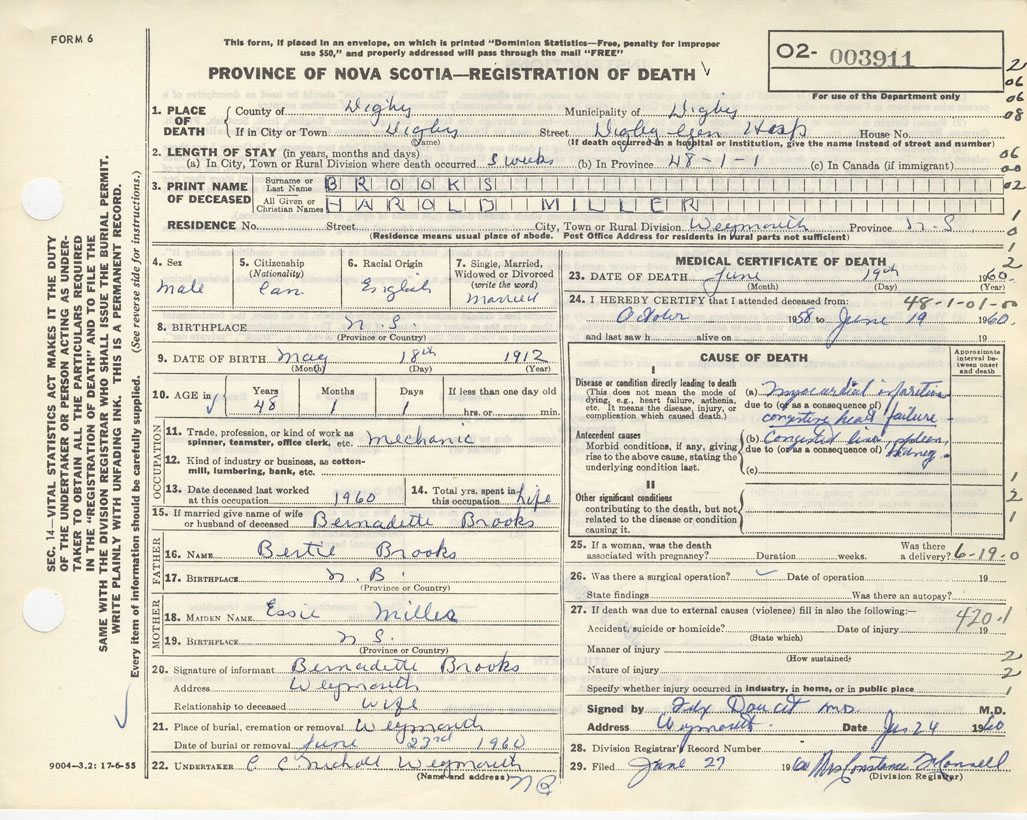 FORM 6
This form, if placed in an envelope, on which is printed "Dominion Statistics—Free, penalty for improper
use $50," and properly addressed will pass through the mail "FREE"
PROVINCE OF NOVA SCOTIA—REGISTRATION OF DEATH
O2- 003911
For use of the Department only
1. PLACE OF DEATH County of Digby Municipality of Digby
If in City or Town Digby Street Digby Gen Hosp House No.
(Name) (If death occurred in a hospital or Institution, give the name instead of street and number)
2. LENGTH OF STAY (in years, months and days)
(a) In City, Town or Rural Division where death occurred 3 weeks (b) In Province 48-1-1 (c) In Canada (if immigrant)
3. PRINT NAME OF DECEASED Surname or Last Name BROOKS
All Given or Christian Names HAROLD MILLER
RESIDENCE No. Street City, Town or Rural Division Weymouth Province N.S
(Residence means usual place of abode. Post Office Address for residents in rural parts not sufficient)
4. Sex male
5. Citizenship (Nationality) Can
6. Racial Origin English
7. Single, Married, Widowed or Divorced (write the word) Married
8. BIRTHPLACE N.S.
(Province or Country)
9. DATE OF BIRTH May 18th 1912
(Month) (Day) (Year)
10. AGE in Years Months Days If less than one day old
48 1 1 hrs. or min.
OCCUPATION
11. Trade, profession, or kind of work as spinner, teamster, office clerk, etc. mechanic
12. Kind of industry or business, as cotton-mill, lumbering, bank, etc.
13. Date deceased last worked at this occupation 1960
14. Total yrs. spent in this occupation life
15. If married give name of wife or husband of deceased Bernadette Brooks
FATHER
16. NAME Bertie Brooks
17. BIRTHPLACE N.B.
(Province or Country)
MOTHER
18. MAIDEN NAME Essie Miller
19. BIRTHPLACE N S.
(Province or Country)
20. Signature of informant Bernadette Brooks
Address Weymouth
Relationship to deceased Wife
21. Place of burial, cremation or removal Weymouth
Date of burial or removal June 23rd 1960
22. UNDERTAKER C C Nicholl Weymouth
(Name and address) NS
MEDICAL CERTIFICATE OF DEATH
23. DATE OF DEATH June 19th 1960
(Month) (Day) (Year)
24. I HEREBY CERTIFY that I attended deceased from: 48-1-01-00
October 1958 to June 19 1960
and last saw h alive on 19
CAUSE OF DEATH
Approximate interval between onset and death
I
Disease or condition directly leading to death
(This does not mean the mode of dying, e.g., heart failure, asthenia, etc. It means the disease, injury, or complication which caused death.)
(a) Myocardial infarction
due to (or as a consequence of)
congestive heart failure
Antecedent causes
Morbid conditions, if any, giving rise to the above cause, stating the underlying condition last.
(b) Congested liver, spleen,
due to (or as a consequence of) kidney.
(c)
II
Other significant conditions
contributing to the death, but not related to the disease or condition causing it.
25. If a woman, was the death associated with pregnancy? Duration weeks. Was there a delivery? 6-19-0
26. Was there a surgical operation? Date of operation 19
State findings Was there an autopsy?
27. If death was due to external causes (violence) fill in also the following:—
420.1
Accident, suicide or homicide? Date of injury 19
(State which)
Manner of injury
(How sustained)
Nature of injury
Specify whether injury occurred in industry, in home, or in public place
Signed by M.D.
Address Weymouth. Date 24 1960
28. Division Registrar's Record Number
29. Filed June 27 1960 Mrs Constance
(Division Registrar)
SEC. 14—VITAL STATISTICS ACT MAKES IT THE DUTY
OF THE UNDERTAKER OR PERSON ACTING AS UNDER-
TAKER TO OBTAIN ALL THE PARTICULARS REQUIRED
IN THE "REGISTRATION OF DEATH" AND TO FILE THE
SAME WITH THE DIVISION REGISTRAR WHO SHALL ISSUE THE BURIAL PERMIT.
WRITE PLAINLY WITH UNFADING INK. THIS IS A PERMANENT RECORD.
Every item of information should be carefully supplied. (See reverse side for instructions.)
9004—3.2: 17-6-55
2
06
06
08
06
00
02
1
0
1
2
1
2
1
2
2
1